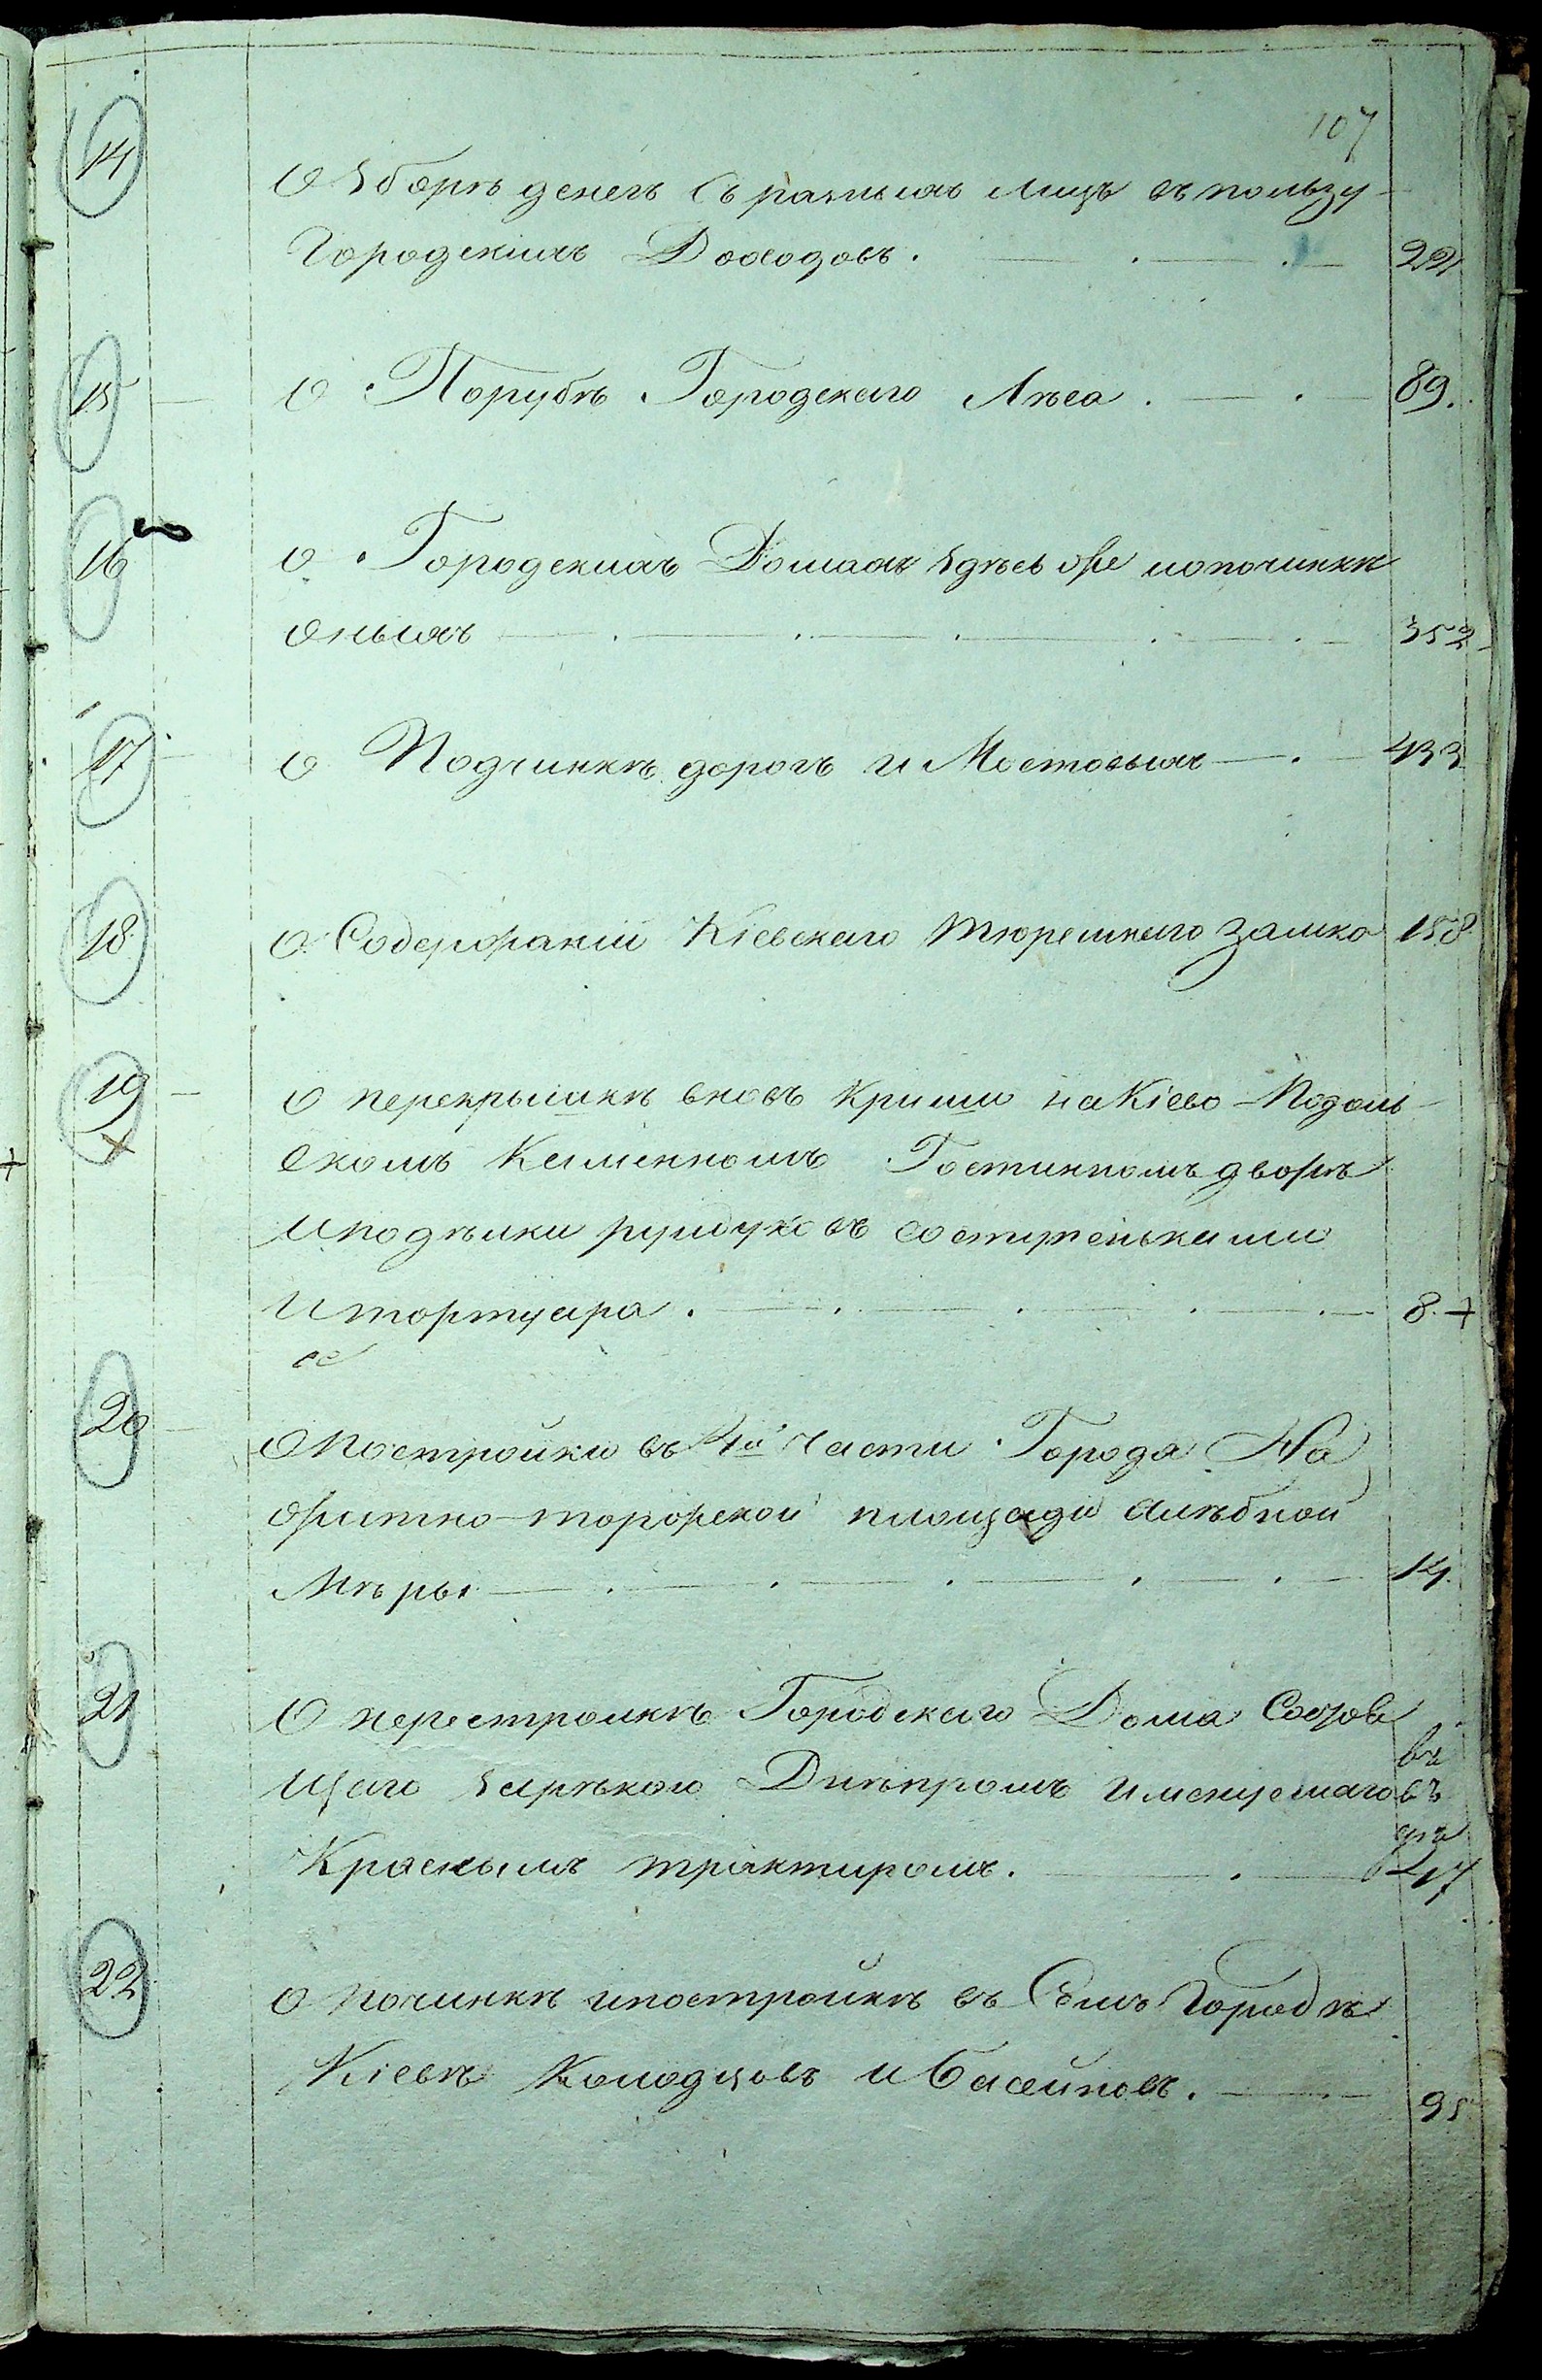 107
14 О Зборѣ денегъ съ разныхъ лицъ въ пользу
Городскихъ Доходовъ. 221
15 О Порубѣ Городскаго Лѣса. 89.
16 О Городскихъ Домахъ здѣсь же и о починкѣ
оныхъ 352
17 О Подчинкѣ дорогъ и Мостовыхъ 433
18 О Содержаніи Кіевскаго Тюремнаго замка 158
19 О перекрышкѣ вновь крыши на Кіево-Подоль
скомъ Каменномъ Гостинномъ дворѣ
и подѣлки рундуковъ со ступеньками
и тортуара. 8.
20 О Постройки въ 4й Части Города На
житно-торжской площади хлѣбной
Мѣры 14.
21 О перестройкѣ Городскаго Дома Состоя
щаго за рѣкою Днѣпромъ имянуемаго
Краснымъ трактиромъ. 217
22 О починкѣ и постройкѣ въ Семъ Городѣ
Кіевѣ Колодцовъ и басейновъ. 95